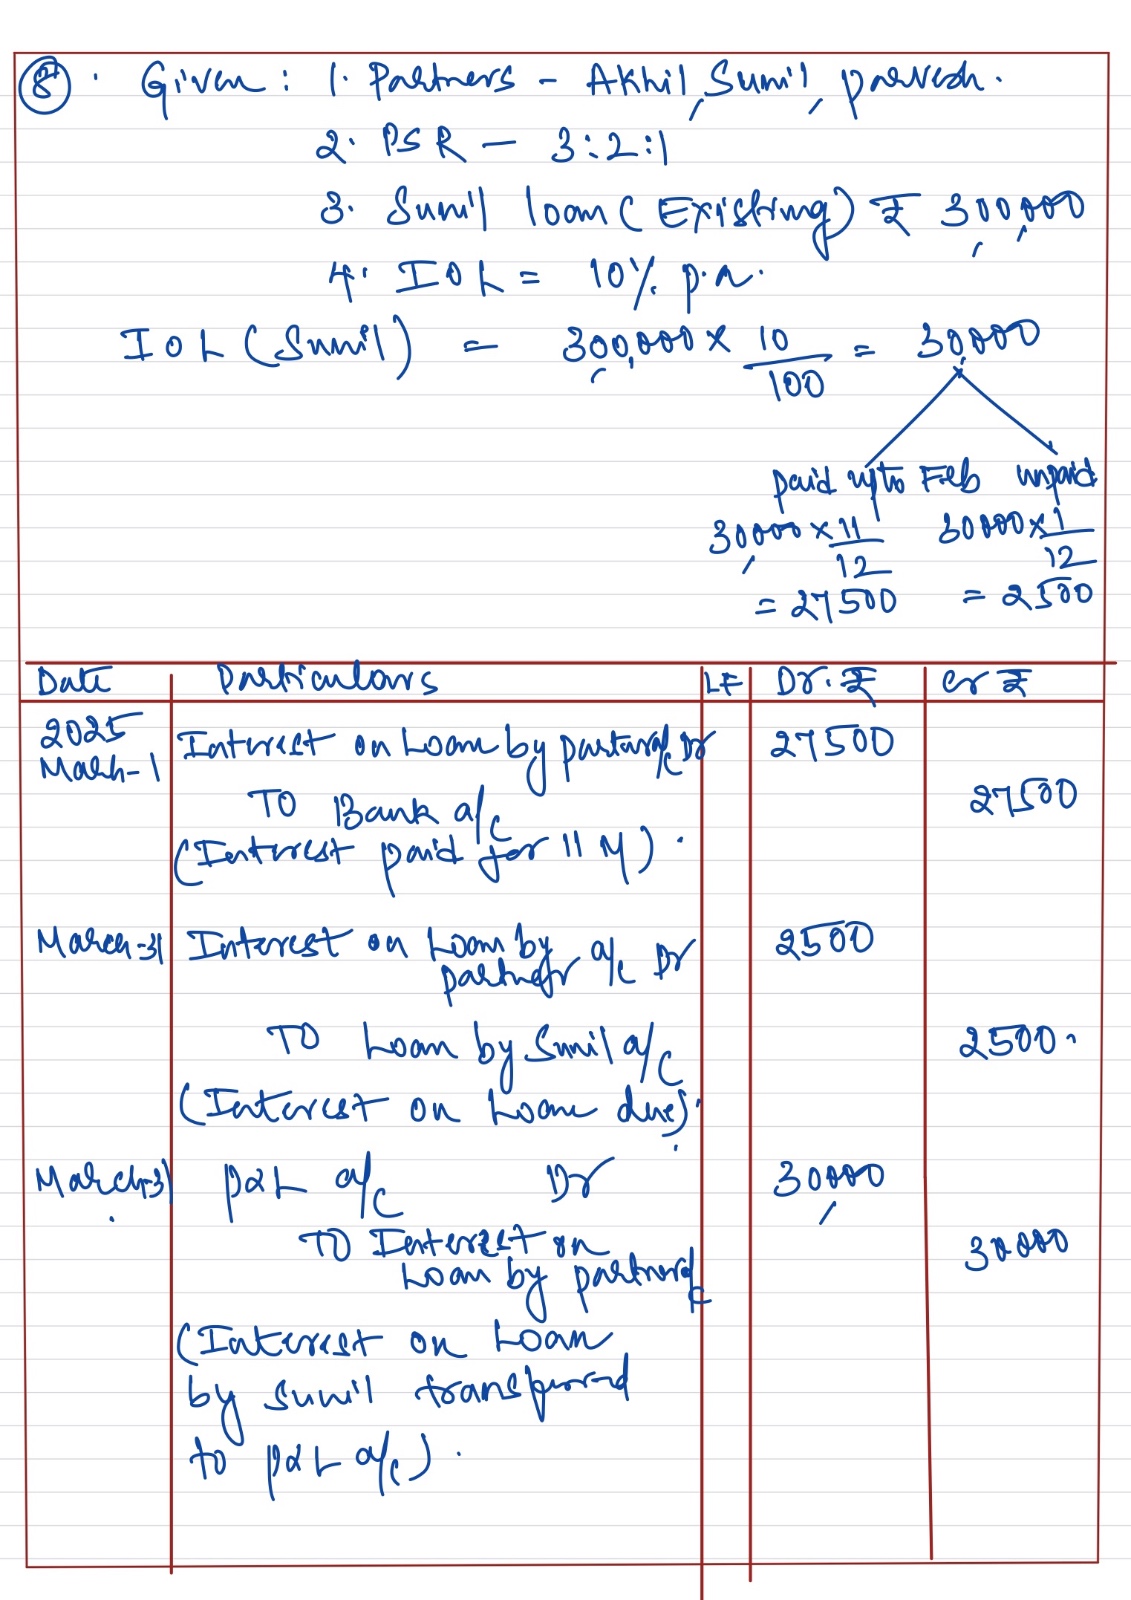 8. Given: 1. Partners - Akhil, Sunil, parvesh.
2. PSR - 3:2:1
3. Sunil loan (Existing) ₹ 300,000
4. IOL = 10% p.a.
IOL (Sunil) = 300,000 × 10/100 = 30,000
paid upto Feb unpaid
30,000 × 11/12 30000 × 1/12
= 27500 = 2500
Date Particulars LF Dr. ₹ Cr ₹
2025
March-1 Interest on Loan by partner a/c Dr 27500
TO Bank a/c 27500
(Interest paid for 11 M).
March-31 Interest on Loan by partner a/c Dr 2500
TO Loan by Sunil a/c 2500.
(Interest on Loan due).
March-31 P&L a/c Dr 30,000
TO Interest on 30000
Loan by partner a/c
(Interest on Loan
by Sunil transferred
to P&L a/c).